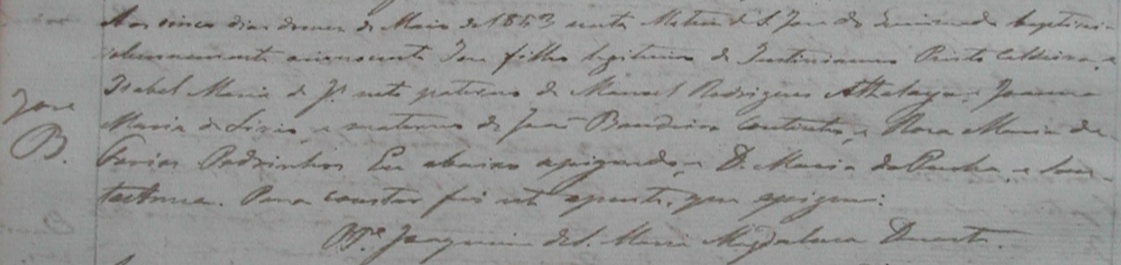 Aos cinco dias do mez de Maio de 1843 nesta Matriz de S. José do baptizei
solemnemente innocente José filho legitimo de Justiniano Pinto Caldeira, e
Isabel Maria de J. neto paterno de Manoel Rodrigues Athalaya e Joanna
Maria de e materno de João Bandeira e Rosa Maria de
Farias Padrinhos Eu abaixo assignado e D. Maria da e
Para constar fiz este que assignei:
P.e Joaquim de S. Maria Magdalena Duarte.
José
B.